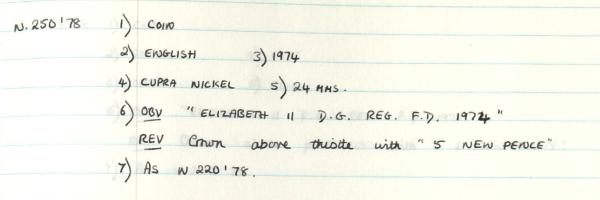 N.250'78 1) COIN
2) ENGLISH 3) 1974
4) CUPRA NICKEL 5) 24 MMS.
6) OBV "ELIZABETH II D.G. REG. F.D. 1974"
REV Crown above thistle with "5 NEW PENCE"
7) AS N 220'78.